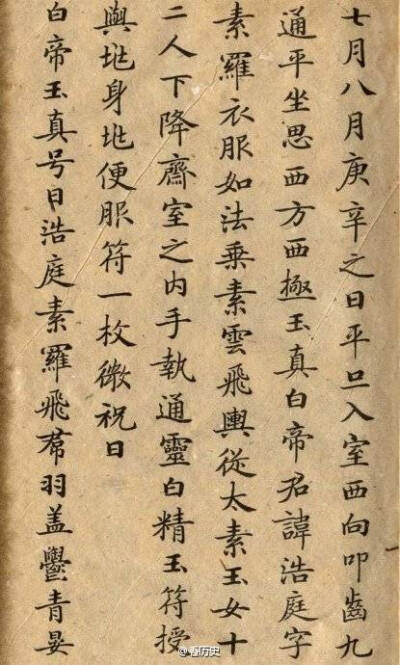 七月八月庚辛之日平旦入室西向叩齒九
通平坐思西方西極玉真白帝君諱浩庭字
素羅衣服如法乗素雲飛輿從太素玉女十
二人下降齋室之内手執通靈白精玉符授
與兆身兆便服符一枚微祝曰
白帝玉真号曰浩庭素羅飛帬羽盖鬱青晏
@看历史